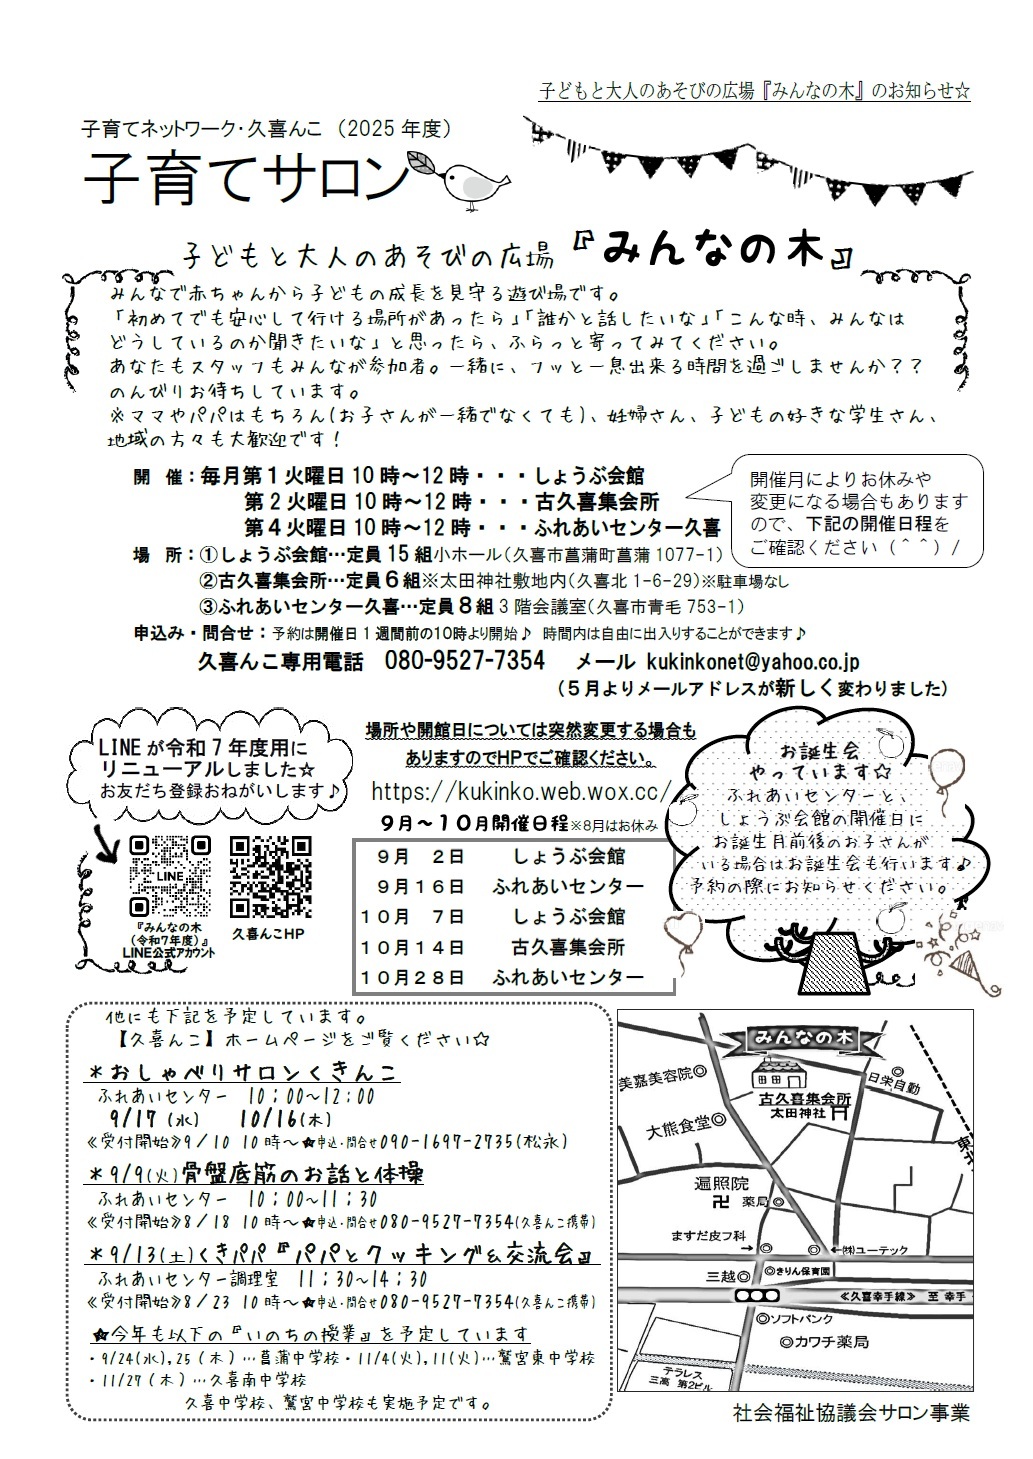 子どもと大人のあそびの広場『みんなの木』のお知らせ☆
子育てネットワーク・久喜んこ （2025年度）
子育てサロン
子どもと大人のあそびの広場 『みんなの木』
みんなで赤ちゃんから子どもの成長を見守る遊び場です。
「初めてでも安心して行ける場所があったら」「誰かと話したいな」「こんな時、みんなは
どうしているのか聞きたいな」と思ったら、ふらっと寄ってみてください。
あなたもスタッフもみんなが参加者。一緒に、フッと一息出来る時間を過ごしませんか？？
のんびりお待ちしています。
※ママやパパはもちろん(お子さんが一緒でなくても)、妊婦さん、子どもの好きな学生さん、
地域の方々も大歓迎です！
開 催：毎月第１火曜日 10 時～12 時・・・しょうぶ会館
第２火曜日 10 時～12 時・・・古久喜集会所
第４火曜日 10 時～12 時・・・ふれあいセンター久喜
開催月によりお休みや
変更になる場合もあります
ので、下記の開催日程を
ご確認ください（＾＾）/
場 所：①しょうぶ会館…定員15組小ホール（久喜市菖蒲町菖蒲 1077-1）
②古久喜集会所…定員６組※太田神社敷地内（久喜北 1-6-29）※駐車場なし
③ふれあいセンター久喜…定員８組 3 階会議室（久喜市青毛 753-1）
申込み・問合せ：予約は開催日１週間前の10時より開始♪ 時間内は自由に出入りすることができます♪
久喜んこ専用電話 080-9527-7354 メール kukinkonet@yahoo.co.jp
（５月よりメールアドレスが新しく変わりました）
LINE が令和７年度用に
リニューアルしました☆
お友だち登録おねがいします♪
LINE
『みんなの木
（令和7年度）』
LINE公式アカウント
久喜んこHP
場所や開館日については突然変更する場合も
ありますのでHPでご確認ください。
https://kukinko.web.wox.cc/
９月～１０月開催日程※8月はお休み
９月 ２日 しょうぶ会館
９月１６日 ふれあいセンター
１０月 ７日 しょうぶ会館
１０月１４日 古久喜集会所
１０月２８日 ふれあいセンター
お誕生会
やっています☆
ふれあいセンターと、
しょうぶ会館の開催日に
お誕生月前後のお子さんが
いる場合はお誕生会も行います♪
予約の際にお知らせください。
他にも下記を予定しています。
【久喜んこ】ホームページをご覧ください☆
＊おしゃべりサロンくきんこ
ふれあいセンター 10：00～12：00
9/17（水） 10/16(木)
《受付開始》9/10 10時～★申込・問合せ090-1697-2735(松永)
＊9/9(火)骨盤底筋のお話と体操
ふれあいセンター 10：00～11：30
《受付開始》8/18 10時～★申込・問合せ080-9527-7354(久喜んこ携帯)
＊9/13(土)くきパパ『パパとクッキング＆交流会』
ふれあいセンター調理室 11：30～14：30
《受付開始》8/23 10時～★申込・問合せ080-9527-7354(久喜んこ携帯)
★今年も以下の『いのちの授業』を予定しています
・9/24(水),25（木）…菖蒲中学校・11/4(火),11(火)…鷲宮東中学校
・11/27（木）…久喜南中学校
久喜中学校、鷲宮中学校も実施予定です。
みんなの木
美嘉美容院◎
古久喜集会所
太田神社
日栄自動
大熊食堂◎
東北
遍照院
卍 薬局◎
ますだ皮フ科
←㈱ユーテック
三越◎
◎きりん保育園
《久喜幸手線》 至 幸手
◎ソフトバンク
◎カワチ薬局
テラレス
三高 第2ビル
社会福祉協議会サロン事業